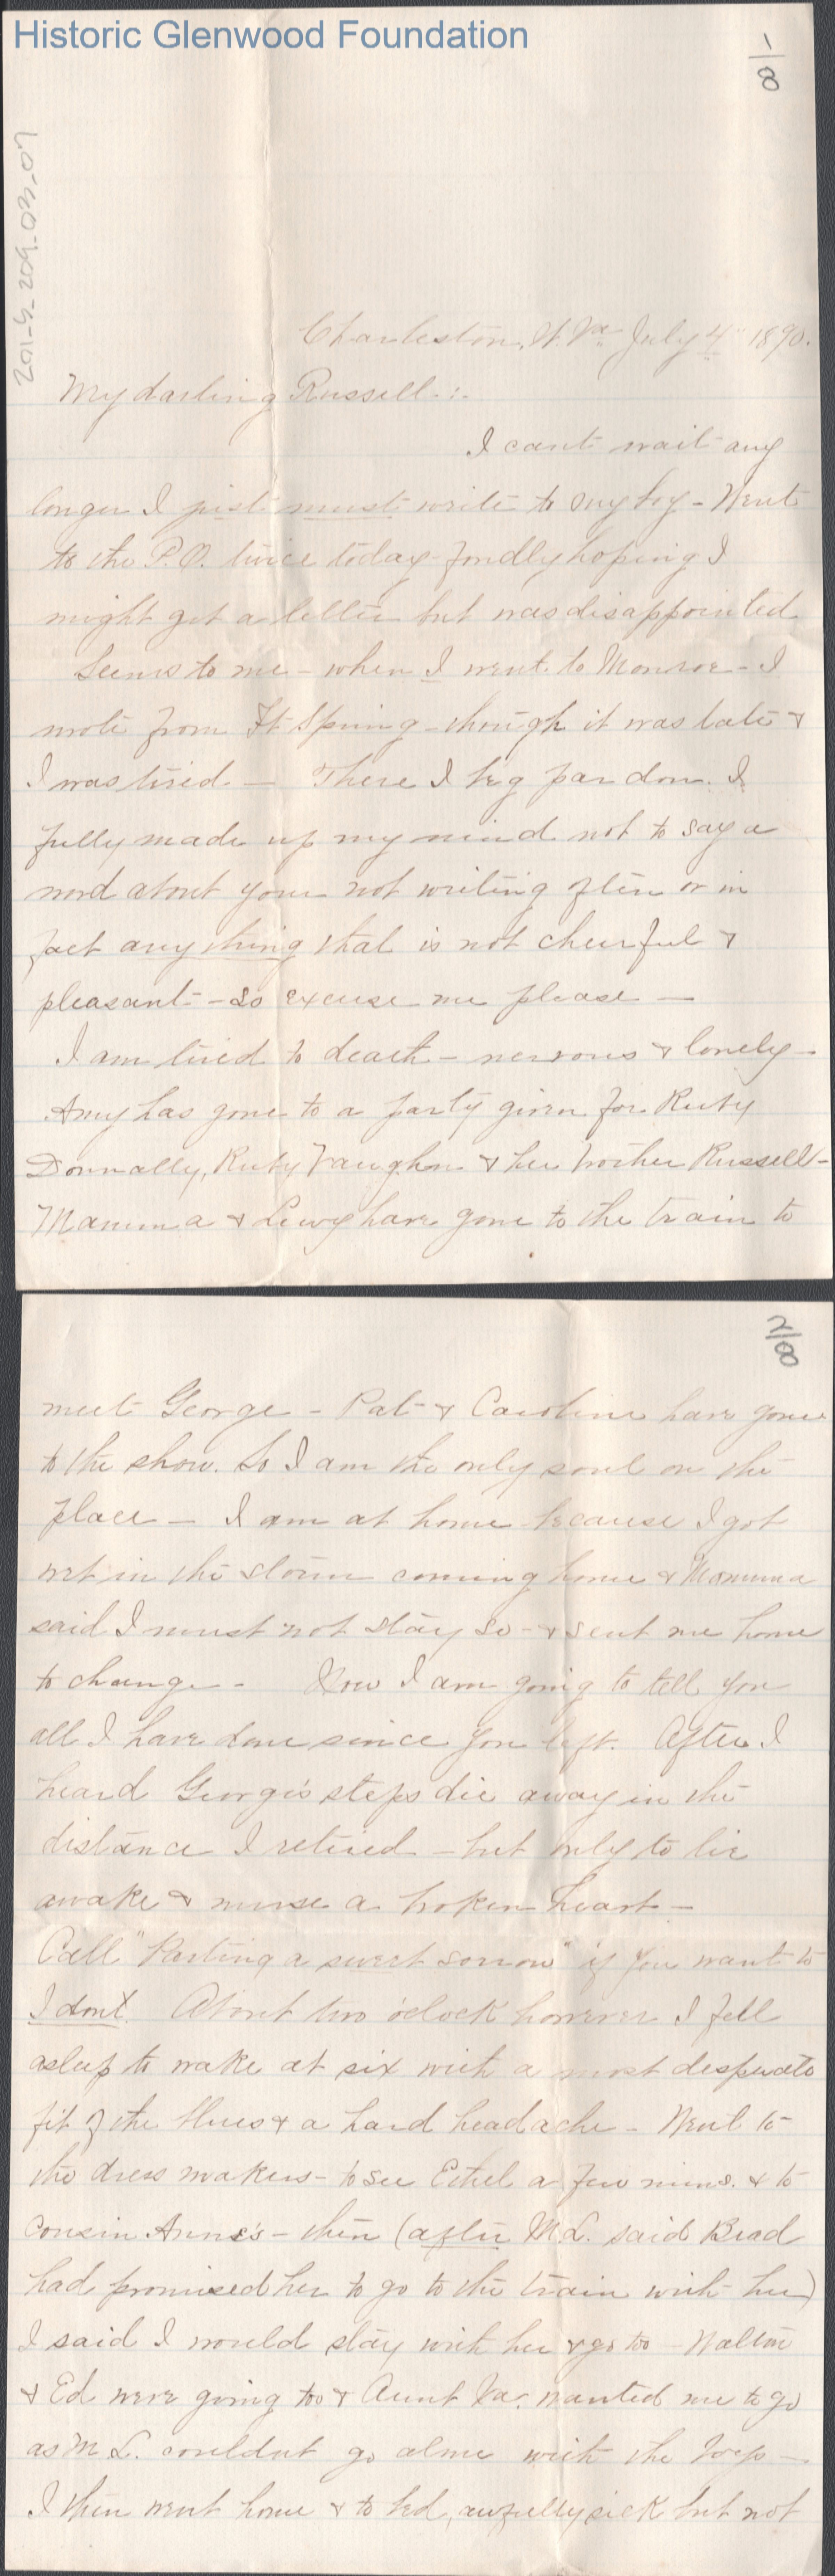 Historic Glenwood Foundation
1/8
2015-209.03.07
Charleston, W. Va. July 4" 1890.
My darling Russell.:.
I cant wait any
longer I just must write to my boy - Went
to the P.O. twice today fondly hoping I
might get a letter but was disappointed
Seems to me - when I went to Monroe - I
wrote from Ft Spring - though it was late &
I was tired - There I beg pardon. I
fully made up my mind not to say a
word about your not writing often or in
fact anything that is not cheerful &
pleasant - so excuse me please -
I am tired to death - nervous & lonely -
Amy has gone to a party given for Ruby
Donnally, Ruby Vaughn & her brother Russell -
Mamma & Lewy have gone to the train to
2/8
meet George - Pat & Caroline have gone
to the show. So I am the only soul on the
place - I am at home because I got
wet in the storm coming home & Mamma
said I must not stay so - & sent me home
to change - Now I am going to tell you
all I have done since you left. After I
heard George's steps die away in the
distance I retired - but only to lie
awake & nurse a broken heart -
Call "Parting a sweet sorrow" if you want to
I dont. About two o'clock however I fell
asleep to wake at six with a most desperate
fit of the blues & a hard headache - Went to
the dress makers - to see Ethel a few mins. & to
cousin Anne's - then (after M L. said Brad
had promised her to go to the train with her)
I said I would stay with her & go too - Walton
& Ed were going too & Aunt Va. wanted me to go
as M L. couldnt go alone with the boys -
I then went home & to bed, awfully sick but not